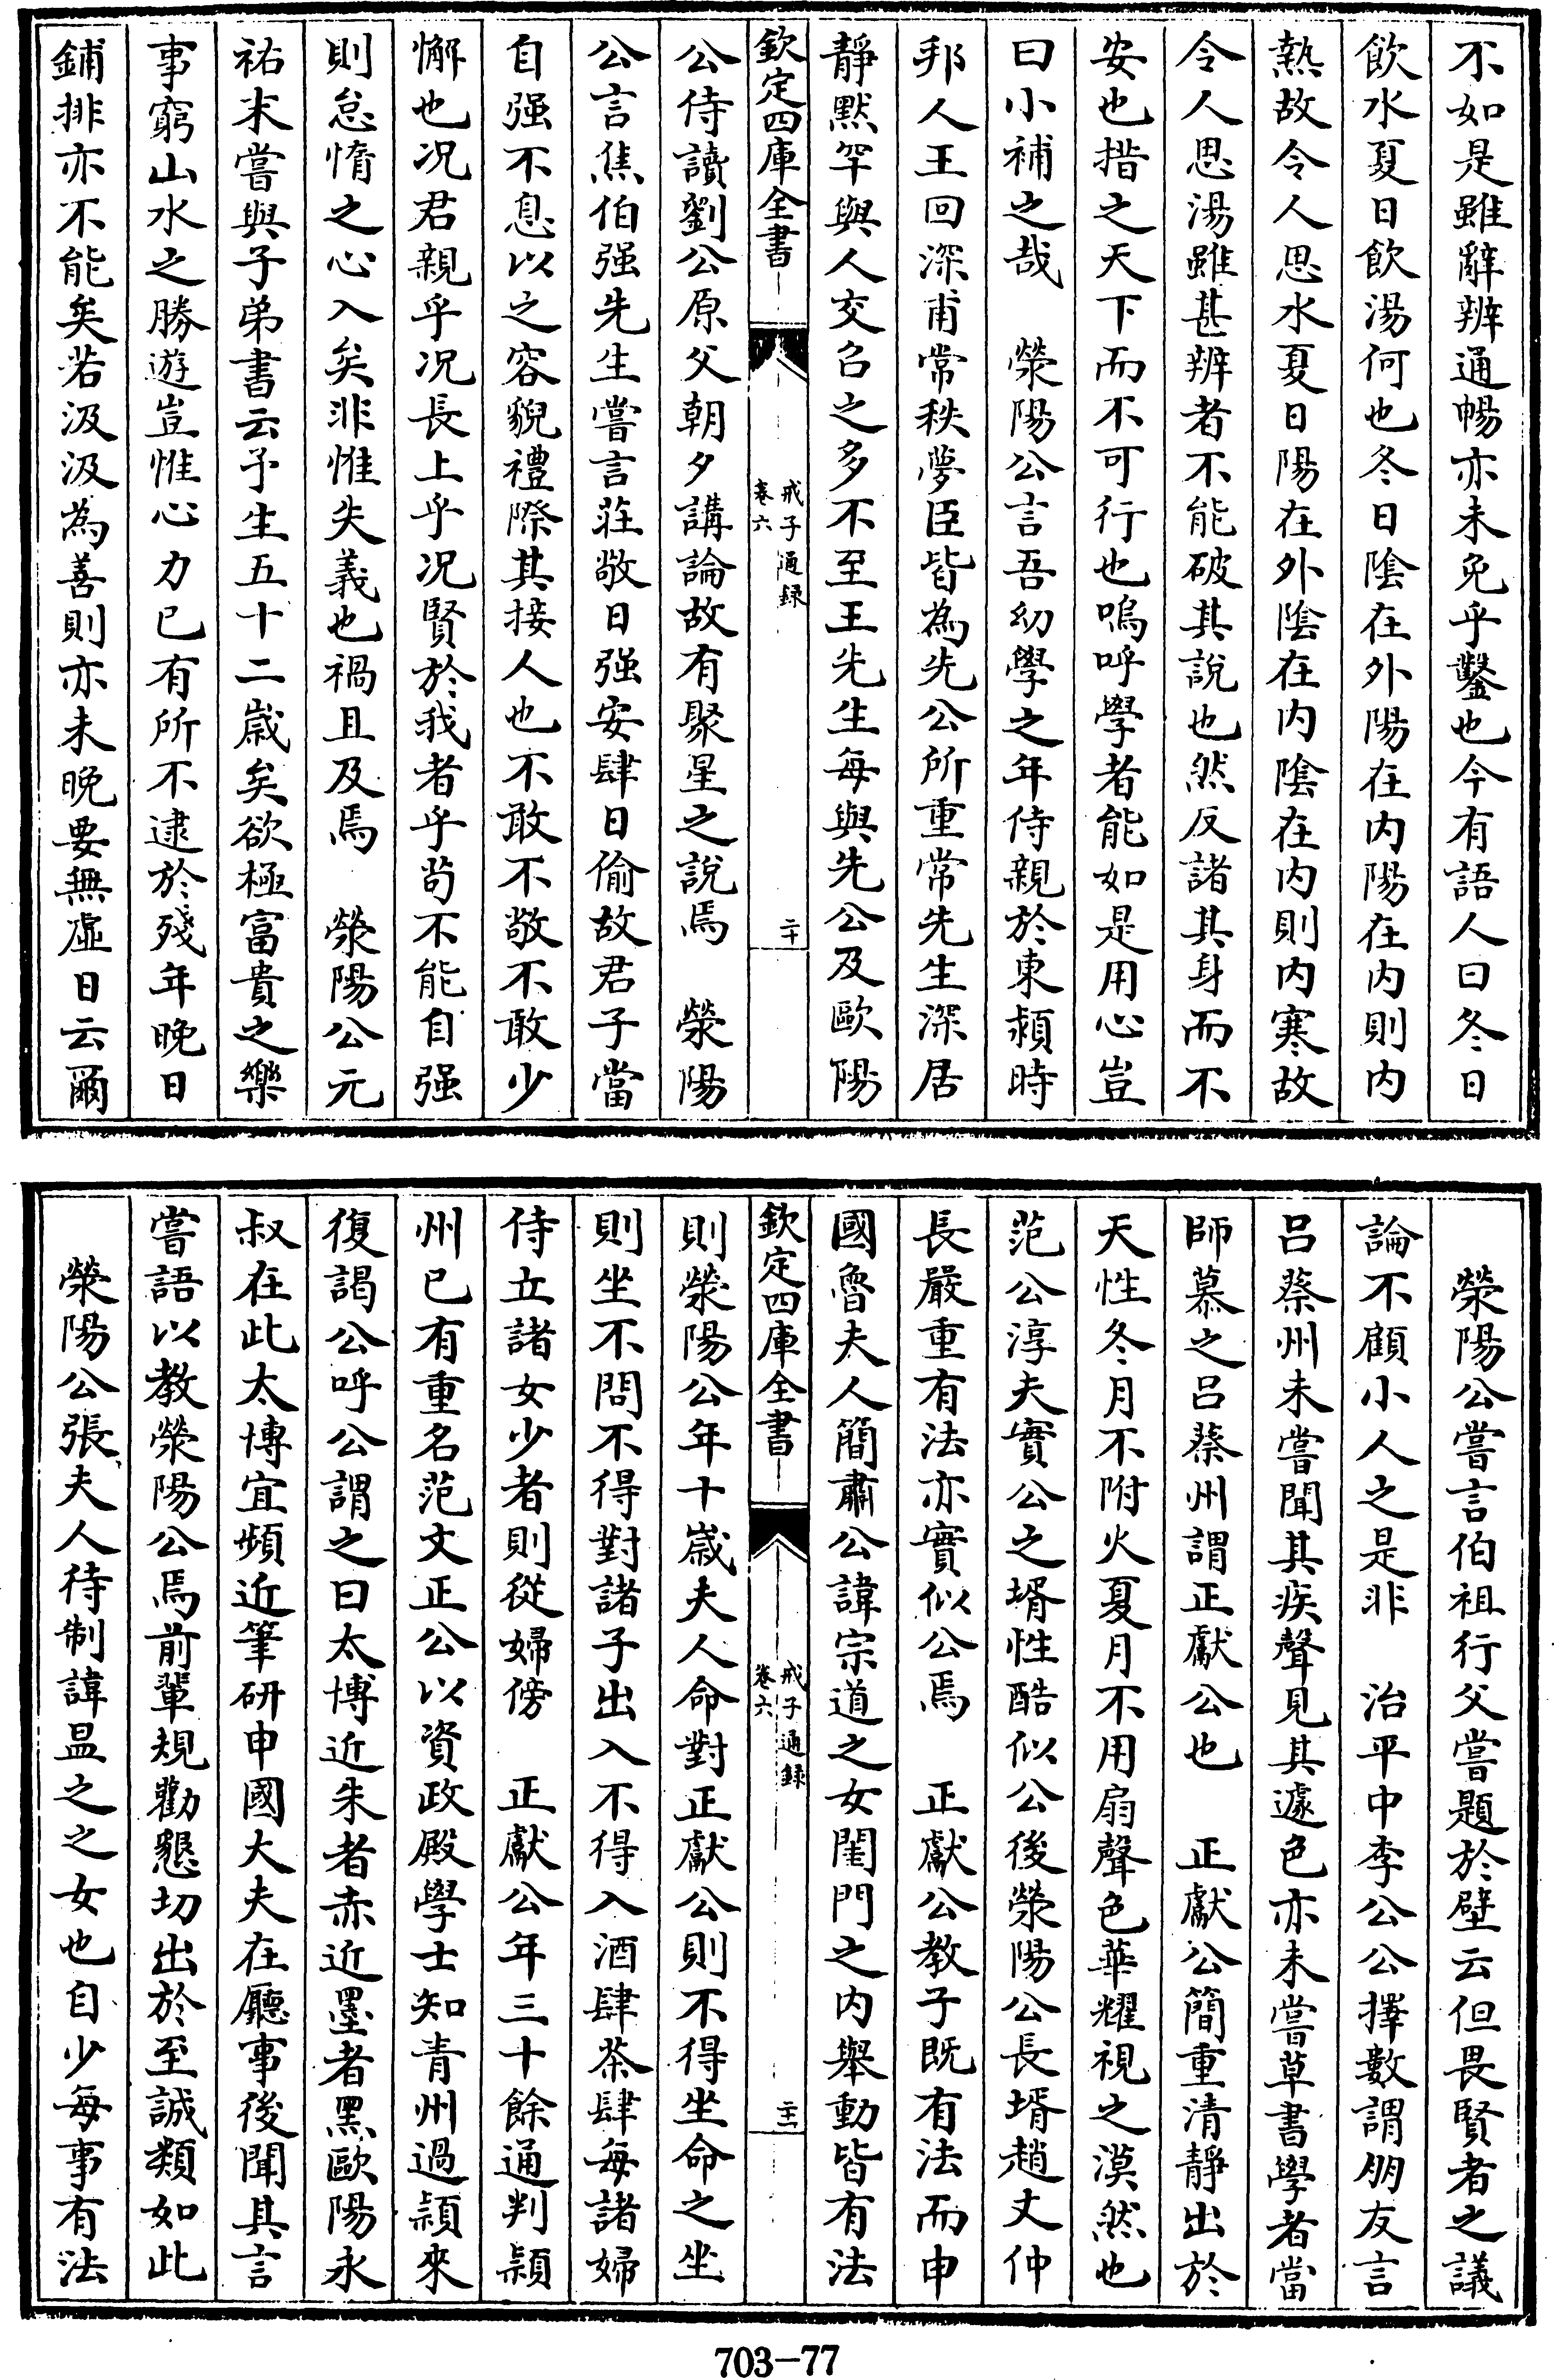 不如是雖辭辨通暢亦未免乎鑿也今有語人曰冬日
飲水夏日飲湯何也冬日陰在外陽在内陽在内則内
熱故令人思水夏日陽在外陰在内陰在内則内寒故
令人思湯雖甚辨者不能破其說也然反諸其身而不
安也措之天下而不可行也嗚呼學者能如是用心豈
曰小補之哉　滎陽公言吾幼學之年侍親於東潁時
邦人王回深甫常秩夢臣皆為先公所重常先生深居
靜默罕與人交召之多不至王先生每與先公及歐陽
欽定四庫全書
戒子通録
卷六
二十
公侍讀劉公原父朝夕講論故有聚星之說焉　滎陽
公言焦伯强先生嘗言莊敬日强安肆日偷故君子當
自强不息以之容貌禮際其接人也不敢不敬不敢少
懈也况君親乎况長上乎况賢於我者乎苟不能自强
則怠惰之心入矣非惟失義也禍且及焉　滎陽公元
祐末嘗與子弟書云予生五十二歳矣欲極富貴之樂
事窮山水之勝遊豈惟心力已有所不逮於殘年晚日
鋪排亦不能矣若汲汲為善則亦未晚要無虚日云爾
滎陽公嘗言伯祖行父嘗題於壁云但畏賢者之議
論不顧小人之是非　治平中李公公擇數謂朋友言
吕蔡州未嘗聞其疾聲見其遽色亦未嘗草書學者當
師慕之吕蔡州謂正獻公也　正獻公簡重清靜出於
天性冬月不附火夏月不用扇聲色華耀視之漠然也
范公淳夫實公之壻性酷似公後滎陽公長壻趙丈仲
長嚴重有法亦實似公焉　正獻公教子既有法而申
國魯夫人簡肅公諱宗道之女閨門之内舉動皆有法
欽定四庫全書
戒子通録
卷六
二十一
則滎陽公年十歳夫人命對正獻公則不得坐命之坐
則坐不問不得對諸子出入不得入酒肆茶肆每諸婦
侍立諸女少者則從婦傍　正獻公年三十餘通判潁
州已有重名范文正公以資政殿學士知青州過潁來
復謁公呼公謂之曰太博近朱者赤近墨者黑歐陽永
叔在此太博宜頻近筆研申國大夫在廳事後聞其言
嘗語以教滎陽公焉前輩規勸懇切出於至誠類如此
滎陽公張夫人待制諱昷之之女也自少每事有法
703-77